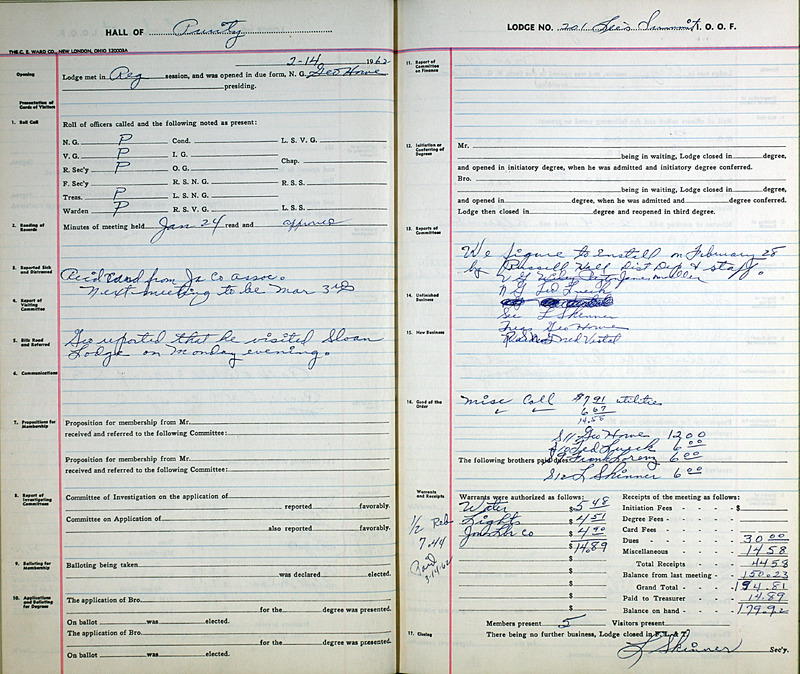 HALL OF Purity
THE C. E. WARD CO., NEW LONDON, OHIO 120003A
2-14 1962
Opening
Lodge met in Reg session, and was opened in due form, N. G. Geo Howe
presiding.
Presentation of Cards of Visitors
1. Roll Call
Roll of officers called and the following noted as present:
N. G. P Cond. L. S. V. G.
V. G. P I. G.
Chap.
R. Sec'y P O. G.
F. Sec'y R. S. N. G. R. S. S.
Treas. P L. S. N. G.
Warden P R. S. V. G. L. S. S.
2. Reading of Records
Minutes of meeting held Jan 24 read and approved
3. Reported Sick and Distressed
Recd Card from Ja Co assoc.
Next meeting to be Mar 3rd
4. Report of Visiting Committee
5. Bills Read and Referred
Geo reported that he visited Sloan
Lodge on Monday evening.
6. Communications
7. Propositions for Membership
Proposition for membership from Mr.
received and referred to the following Committee:
Proposition for membership from Mr.
received and referred to the following Committee:
8. Report of Investigating Committees
Committee of Investigation on the application of
reported favorably.
Committee on Application of
also reported favorably.
9. Balloting for Membership
Balloting being taken
was declared elected.
10. Applications and Balloting for Degrees
The application of Bro.
for the degree was presented.
On ballot was elected.
The application of Bro.
for the degree was presented.
On ballot was elected.
LODGE NO. 201 Lee's Summit I. O. O. F.
11. Report of Committee on Finance
12. Initiation or Conferring of Degrees
Mr.
being in waiting, Lodge closed in degree,
and opened in initiatory degree, when he was admitted and initiatory degree conferred.
Bro.
being in waiting, Lodge closed in degree,
and opened in degree, when he was admitted and degree conferred.
Lodge then closed in degree and reopened in third degree.
13. Reports of Committees
We figure to install on February 28
by Russell Dist Dep & staff.
N G
14. Unfinished Business
Sec L Skinner
Treas Geo Howe
15. New Business
Fred Vestal
16. Good of the Order
Misc Call $7.91 utilities
6.67
14.58
Geo Howe 12.00
6.00
The following brothers paid dues Frank Lorenz 6.00
L Skinner 6.00
Warrants and Receipts
Warrants were authorized as follows:
Water $5.48
Lights $4.51
Jones Lbr Co $4.90
$14.89
1/2 Reb
7.44
Paid
3-14-62
Receipts of the meeting as follows:
Initiation Fees $
Degree Fees
Card Fees
Dues 30.00
Miscellaneous 14.58
Total Receipts 44.58
Balance from last meeting 150.23
Grand Total 194.81
Paid to Treasurer 14.89
Balance on hand 179.92
Members present 5 Visitors present
17. Closing
There being no further business, Lodge closed in F., L. & T.
L Skinner Sec'y.